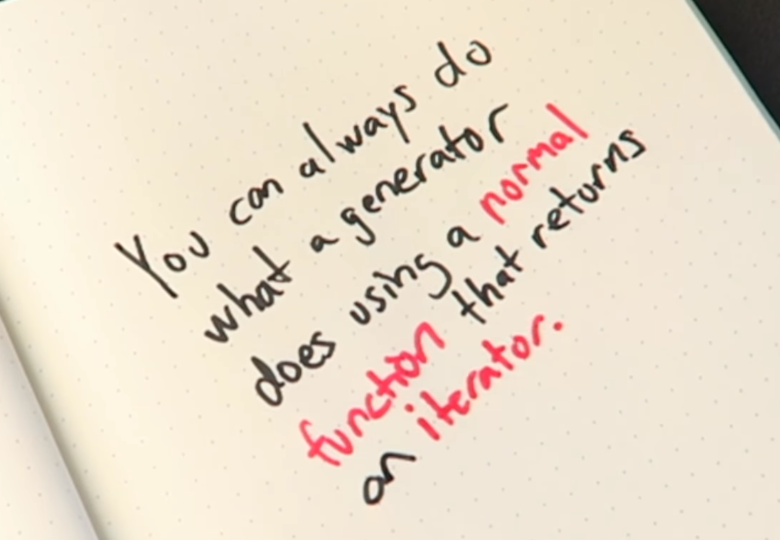 You can always do
what a generator
does using a normal
function that returns
an iterator.